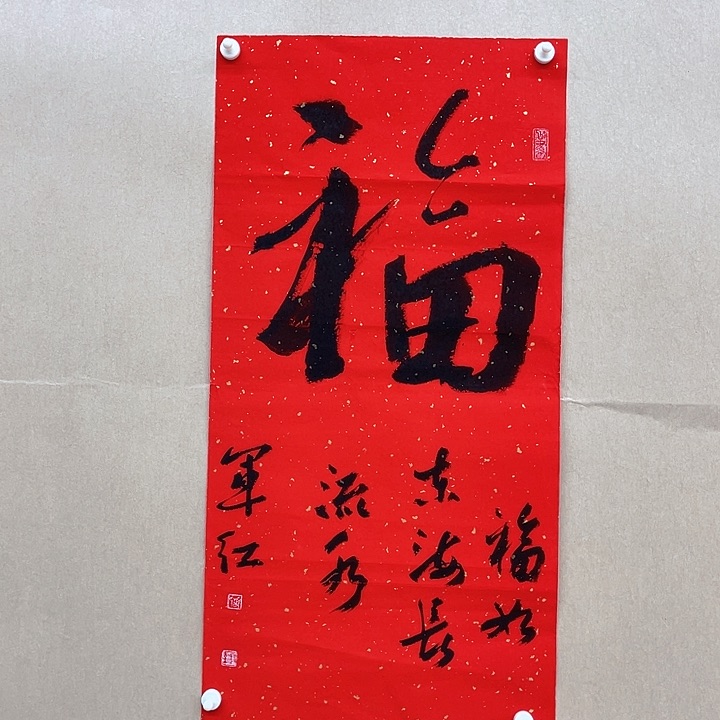 福
福如
东海长
流水
军红